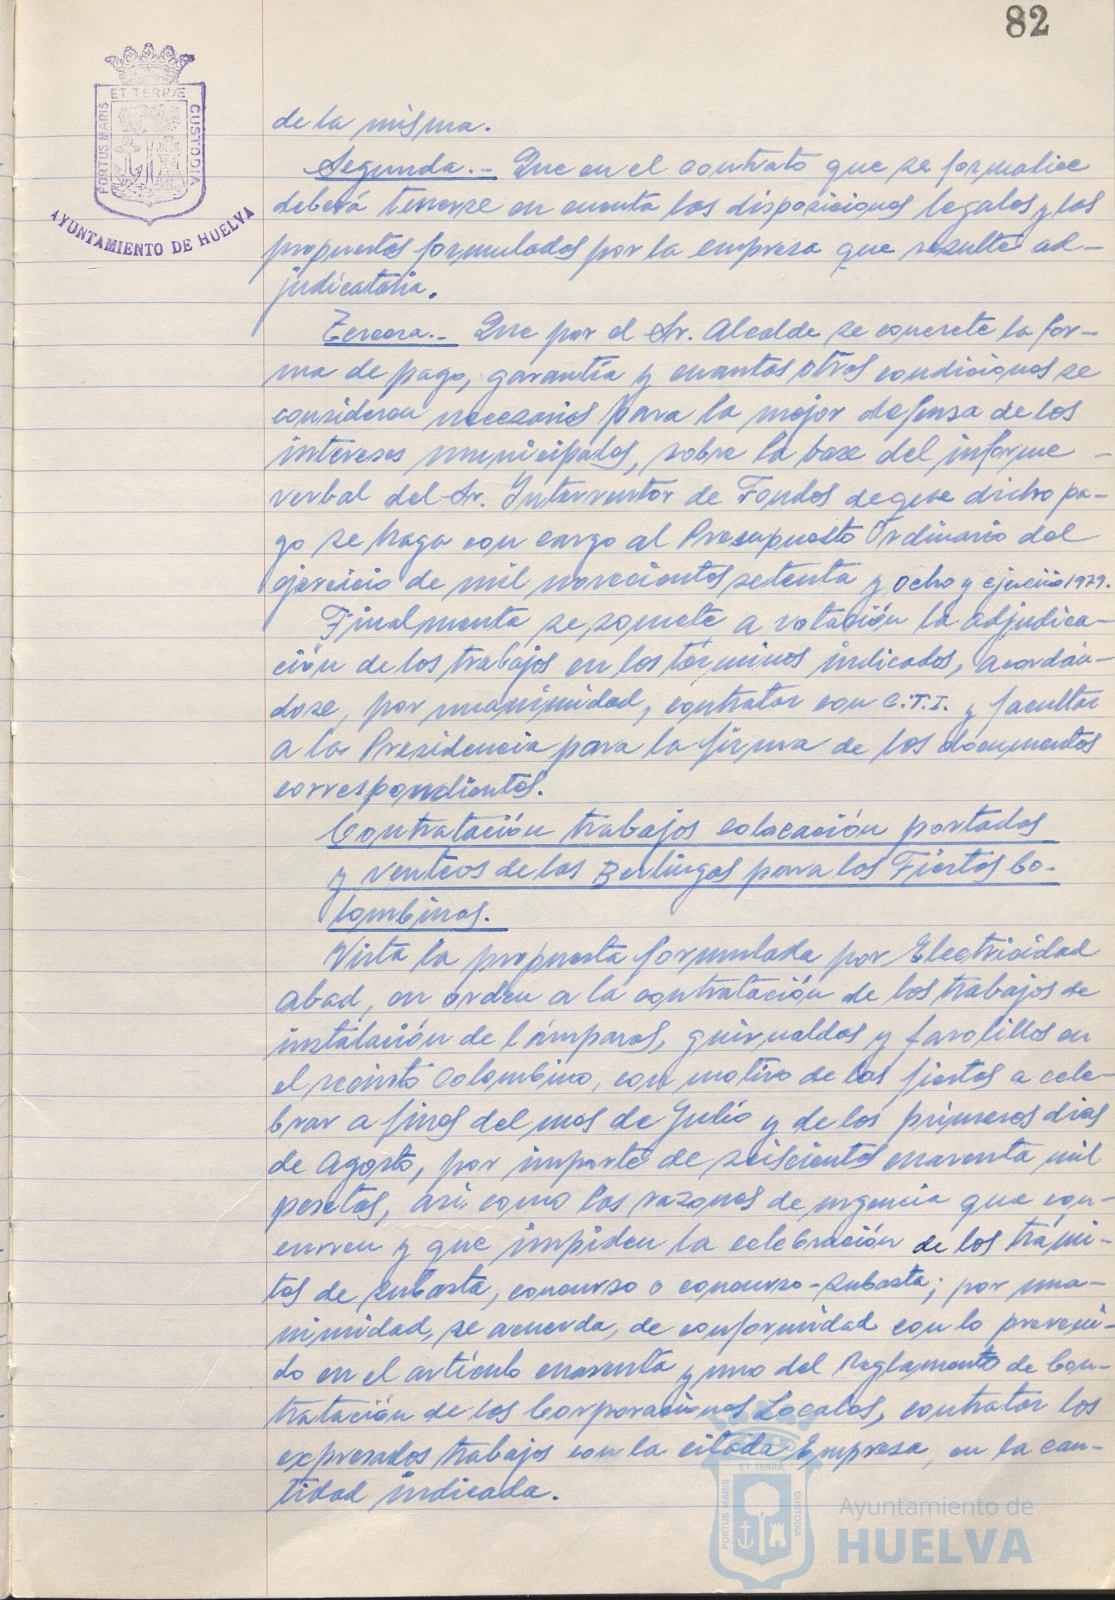 82
ET TERRÆ
PORTUS MARIS
CUSTODIA
AYUNTAMIENTO DE HUELVA
de la misma.
Segunda.- Que en el contrato que se formalice
deberá tenerse en cuenta las disposiciones legales y las
propuestas formuladas por la empresa que resulte ad-
judicataria.
Tercera.- Que por el Sr. Alcalde se concrete la for-
ma de pago, garantía y cuantas otras condiciones se
consideren necesarias para la mejor defensa de los
intereses municipales, sobre la base del informe -
verbal del Sr. Interventor de Fondos de que dicho pa-
go se haga con cargo al Presupuesto Ordinario del
ejercicio de mil novecientos setenta y ocho y ejercicio 1979.
Finalmente se somete a votación la adjudica-
ción de los trabajos en los términos indicados, acordán-
dose, por unanimidad, contratar con C.T.I. y facultar
a la Presidencia para la firma de los documentos
correspondientes.
Contratación trabajos colocación portadas
y venteos de las Berlingas para las Fiestas Co-
lombinas.
Vista la propuesta formulada por Electricidad
Abad, en orden a la contratación de los trabajos de
instalación de lámparas, guirnaldas y farolillos en
el recinto Colombino, con motivo de las fiestas a cele-
brar a fines del mes de Julio y de los primeros días
de Agosto, por importe de seiscientas cuarenta mil
pesetas, así como las razones de urgencia que con-
curren y que impiden la celebración de los trámi-
tes de subasta, concurso o concurso-subasta; por una-
nimidad, se acuerda, de conformidad con lo preveni-
do en el artículo cuarenta y uno del Reglamento de Con-
tratación de las Corporaciones Locales, contratar los
expresados trabajos con la citada Empresa, en la can-
tidad indicada.
ET TERRA
PORTUS MARIS
CUSTODIA
Ayuntamiento de
HUELVA